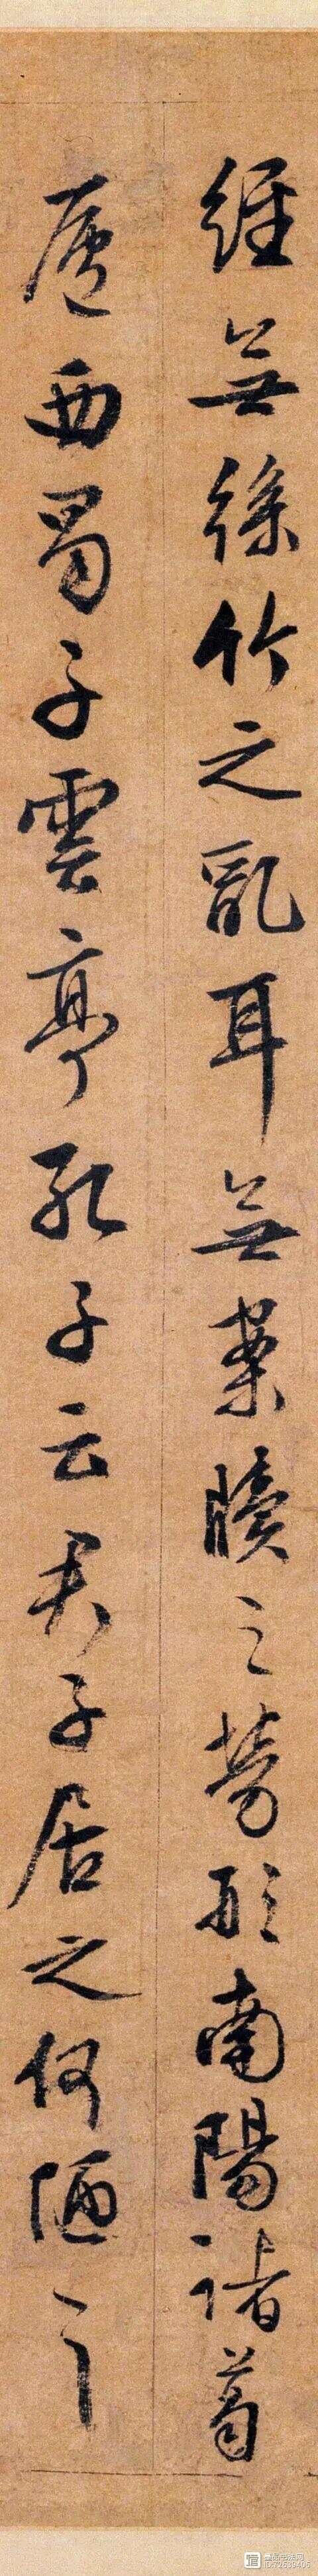 經無絲竹之亂耳無案牘之勞形南陽諸葛
廬西蜀子雲亭孔子云君子居之何陋之